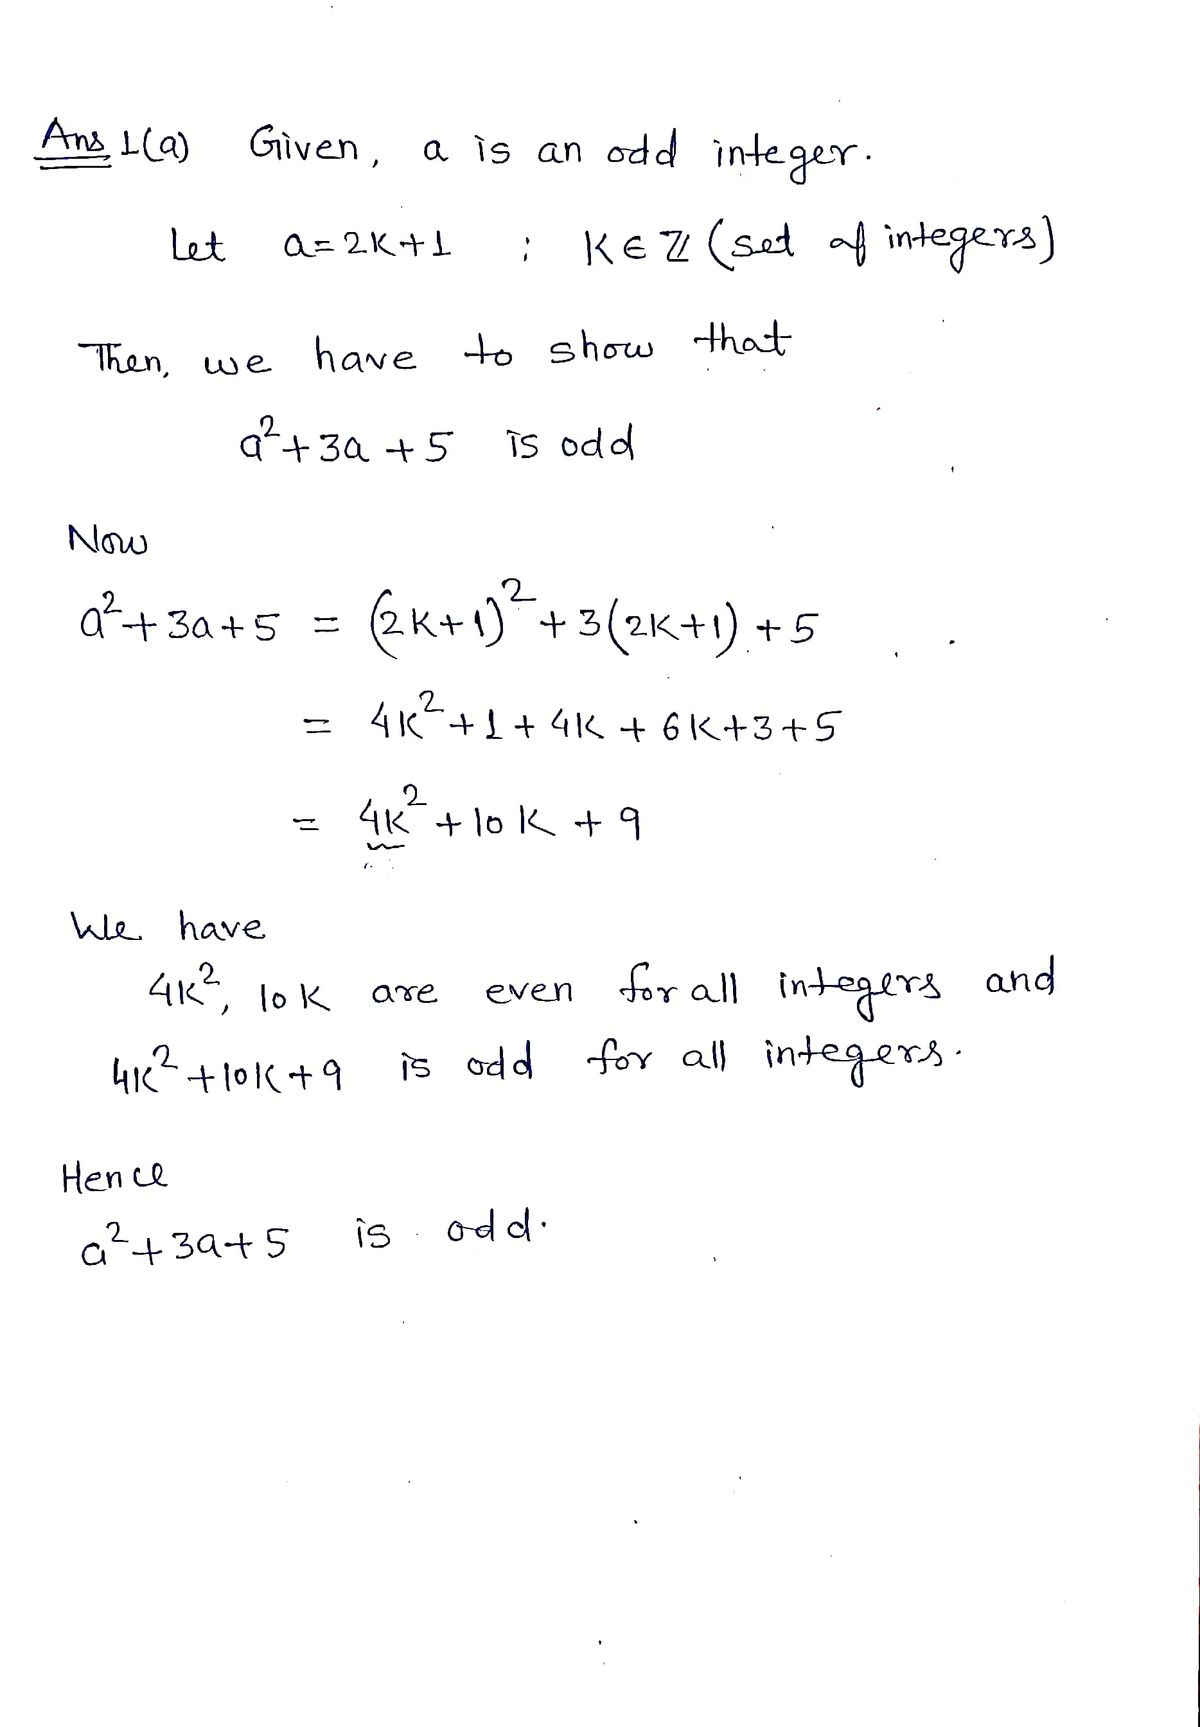 Ans 1(a) Given, a is an odd integer.
Let a=2K+1 ; K∈ℤ (set of integers)
Then, we have to show that
a²+3a+5 is odd
Now
a²+3a+5 = (2K+1)²+3(2K+1)+5
= 4K²+1+4K+6K+3+5
= 4K²+10K+9
We have
4K², 10K are even for all integers and
4K²+10K+9 is odd for all integers.
Hence
a²+3a+5 is odd.